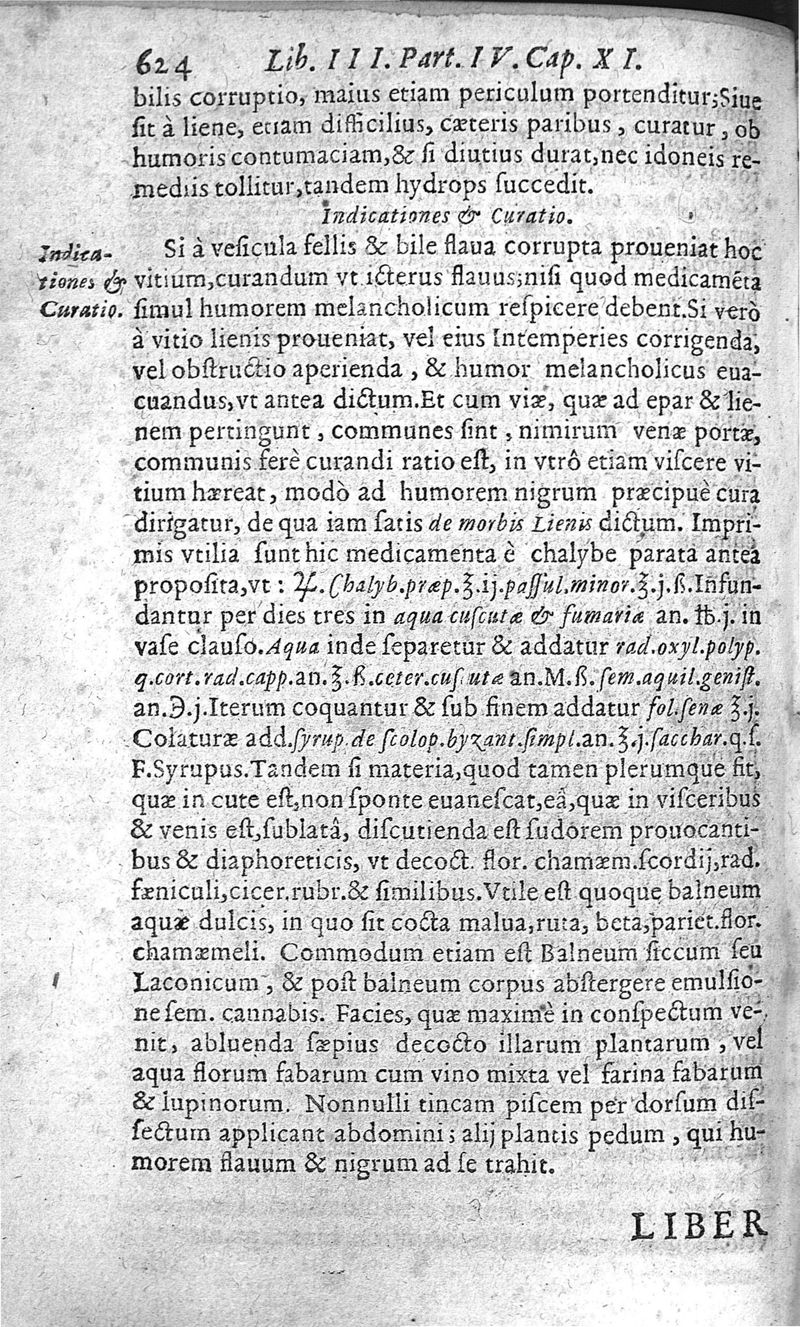 624 Lib. III. Part. IV. Cap. XI.
bilis corruptio, maius etiam periculum portenditur;Siue
ſit à liene, etiam difficilius, cæteris paribus, curatur, ob
humoris contumaciam,& ſi diutius durat,nec idoneis re-
mediis tollitur,tandem hydrops ſuccedit.
Indicationes & Curatio.
Indica-
tiones &
Curatio.
Si à veſicula fellis & bile flaua corrupta proueniat hoc
vitium,curandum vt icterus flauus;niſi quod medicamēta
ſimul humorem melancholicum reſpicere debent.Si verò
à vitio lienis proueniat, vel eius Intemperies corrigenda,
vel obſtructio aperienda, & humor melancholicus eua-
cuandus,vt antea dictum.Et cum viæ, quæ ad epar & lie-
nem pertingunt, communes ſint, nimirum venæ portæ,
communis ferè curandi ratio eſt, in vtrô etiam viſcere vi-
tium hæreat, modò ad humorem nigrum præcipuè cura
dirigatur, de qua iam ſatis de morbis Lienis dictum. Impri-
mis vtilia ſunt hic medicamenta è chalybe parata antea
propoſita,vt: ♃. Chalyb.præp.℥.ij.paſſul.minor.℥.j.ß.Infun-
dantur per dies tres in aqua cuſcutæ & fumariæ an. ℔.j. in
vaſe clauſo.Aqua inde ſeparetur & addatur rad.oxyl.polyp.
q.cort.rad.capp.an.℥.ß.ceter.cuſcutæ an.M.ß.ſem.aquil.geniſt.
an.℈.j.Iterum coquantur & ſub finem addatur fol.ſenæ ℥.j.
Colaturæ add.ſyrup.de ſcolop.byzant.ſimpl.an.℥.j.ſacchar.q.ſ.
F.Syrupus.Tandem ſi materia,quod tamen plerumque fit,
quæ in cute eſt,non ſponte euaneſcat,eâ,quæ in viſceribus
& venis eſt,ſublatâ, diſcutienda eſt ſudorem prouocanti-
bus & diaphoreticis, vt decoct. flor. chamæm.ſcordij,rad.
fæniculi,cicer.rubr.& ſimilibus.Vtile eſt quoque balneum
aquæ dulcis, in quo ſit cocta malua,ruta, beta,pariet.flor.
chamæmeli. Commodum etiam eſt Balneum ſiccum ſeu
Laconicum, & poſt balneum corpus abſtergere emulſio-
ne ſem. cannabis. Facies, quæ maximè in conſpectum ve-
nit, abluenda ſæpius decocto illarum plantarum, vel
aqua florum fabarum cum vino mixta vel farina fabarum
& lupinorum. Nonnulli tincam piſcem per dorſum diſ-
ſectum applicant abdomini; alij plantis pedum, qui hu-
morem flauum & nigrum ad ſe trahit.
LIBER